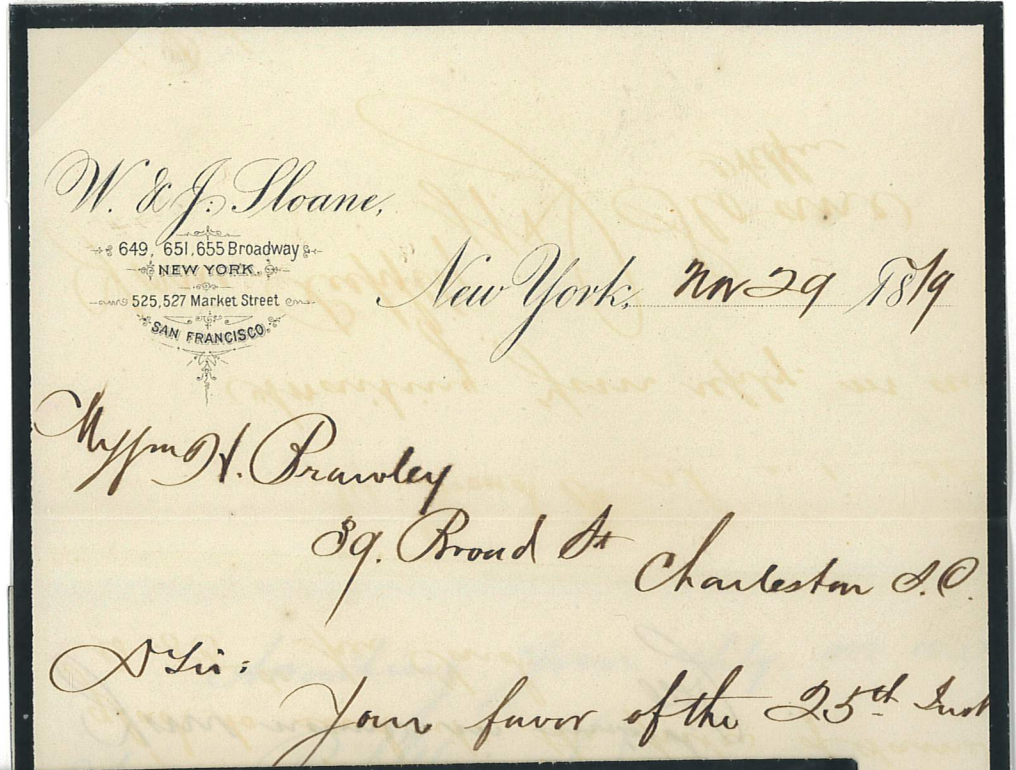 W. & J. Sloane,
649, 651, 655 Broadway
NEW YORK.
525, 527 Market Street
SAN FRANCISCO.
New York, Nov 29 1879
H. Brawley
39. Broad St
Charleston S.C.
D Sir:
Your favor of the 25th Inst